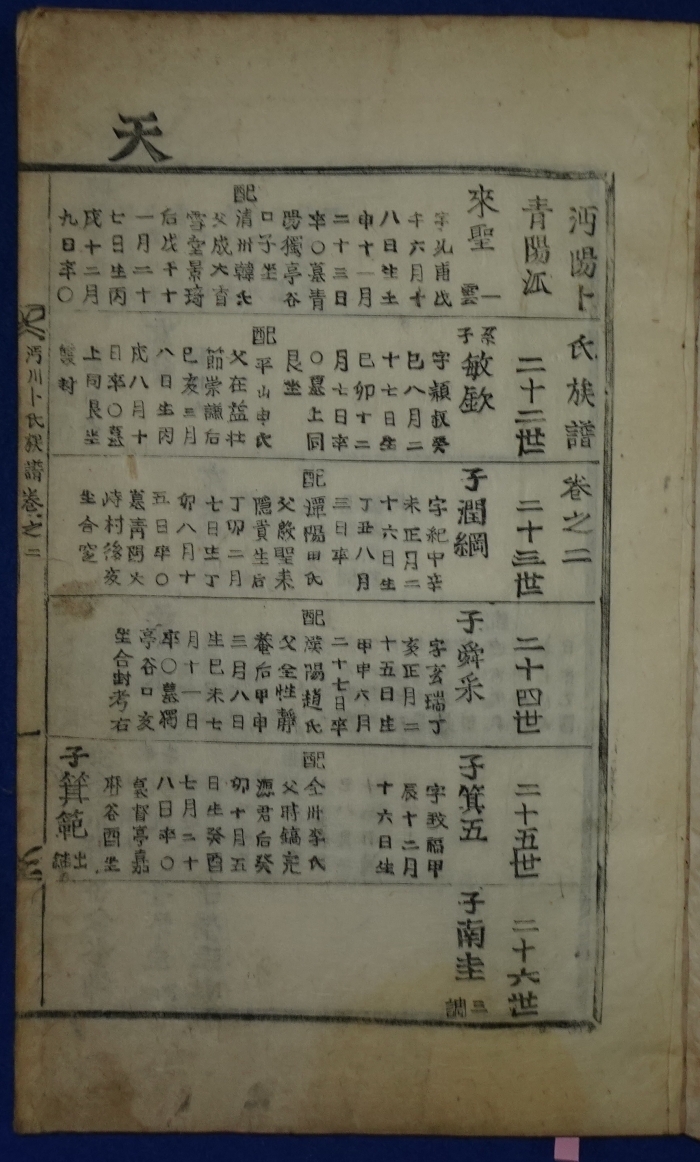 天
沔陽卜氏族譜卷之二
青陽派
來聖
字允甫戊
午六月十
八日生壬
申十一月
二十三日
卒○墓青
陽獨亭谷
口子坐
配
清州韓氏
父成大直
雪堂景琦
后戊午十
一月二十
七日生丙
戌十二月
九日卒○
二十二世
系子敏欽
字穎叔癸
巳八月二
十七日生
己卯十二
月七日卒
○墓上同
艮坐
配
平山申氏
父在益壯
節崇謙后
己亥三月
八日生丙
戌八月十
日卒○墓
上同艮坐
雙封
二十三世
子潤綱
字紀中辛
未正月二
十六日生
丁丑八月
三日卒
配
潭陽田氏
父啟聖耒
隱貴生后
丁卯二月
七日生丁
卯八月十
五日卒○
墓靑陽火
峙村後亥
坐合窆
二十四世
子舜采
字玄瑞丁
亥正月二
十五日生
甲申六月
二十七日卒
配
漢陽趙氏
父全性靜
菴后甲申
三月八日
生己未七
月十一日
卒○墓獨
亭谷口亥
坐合封考右
二十五世
子箕五
字敎福甲
辰十二月
十六日生
配
全州李氏
父時鎬完
德君后癸
卯十月五
日生癸酉
七月二十
八日卒○
墓督亭嘉
麻谷酉坐
子箕範
出
二十六世
子南圭
三
調
沔川卜氏族譜卷之二
一